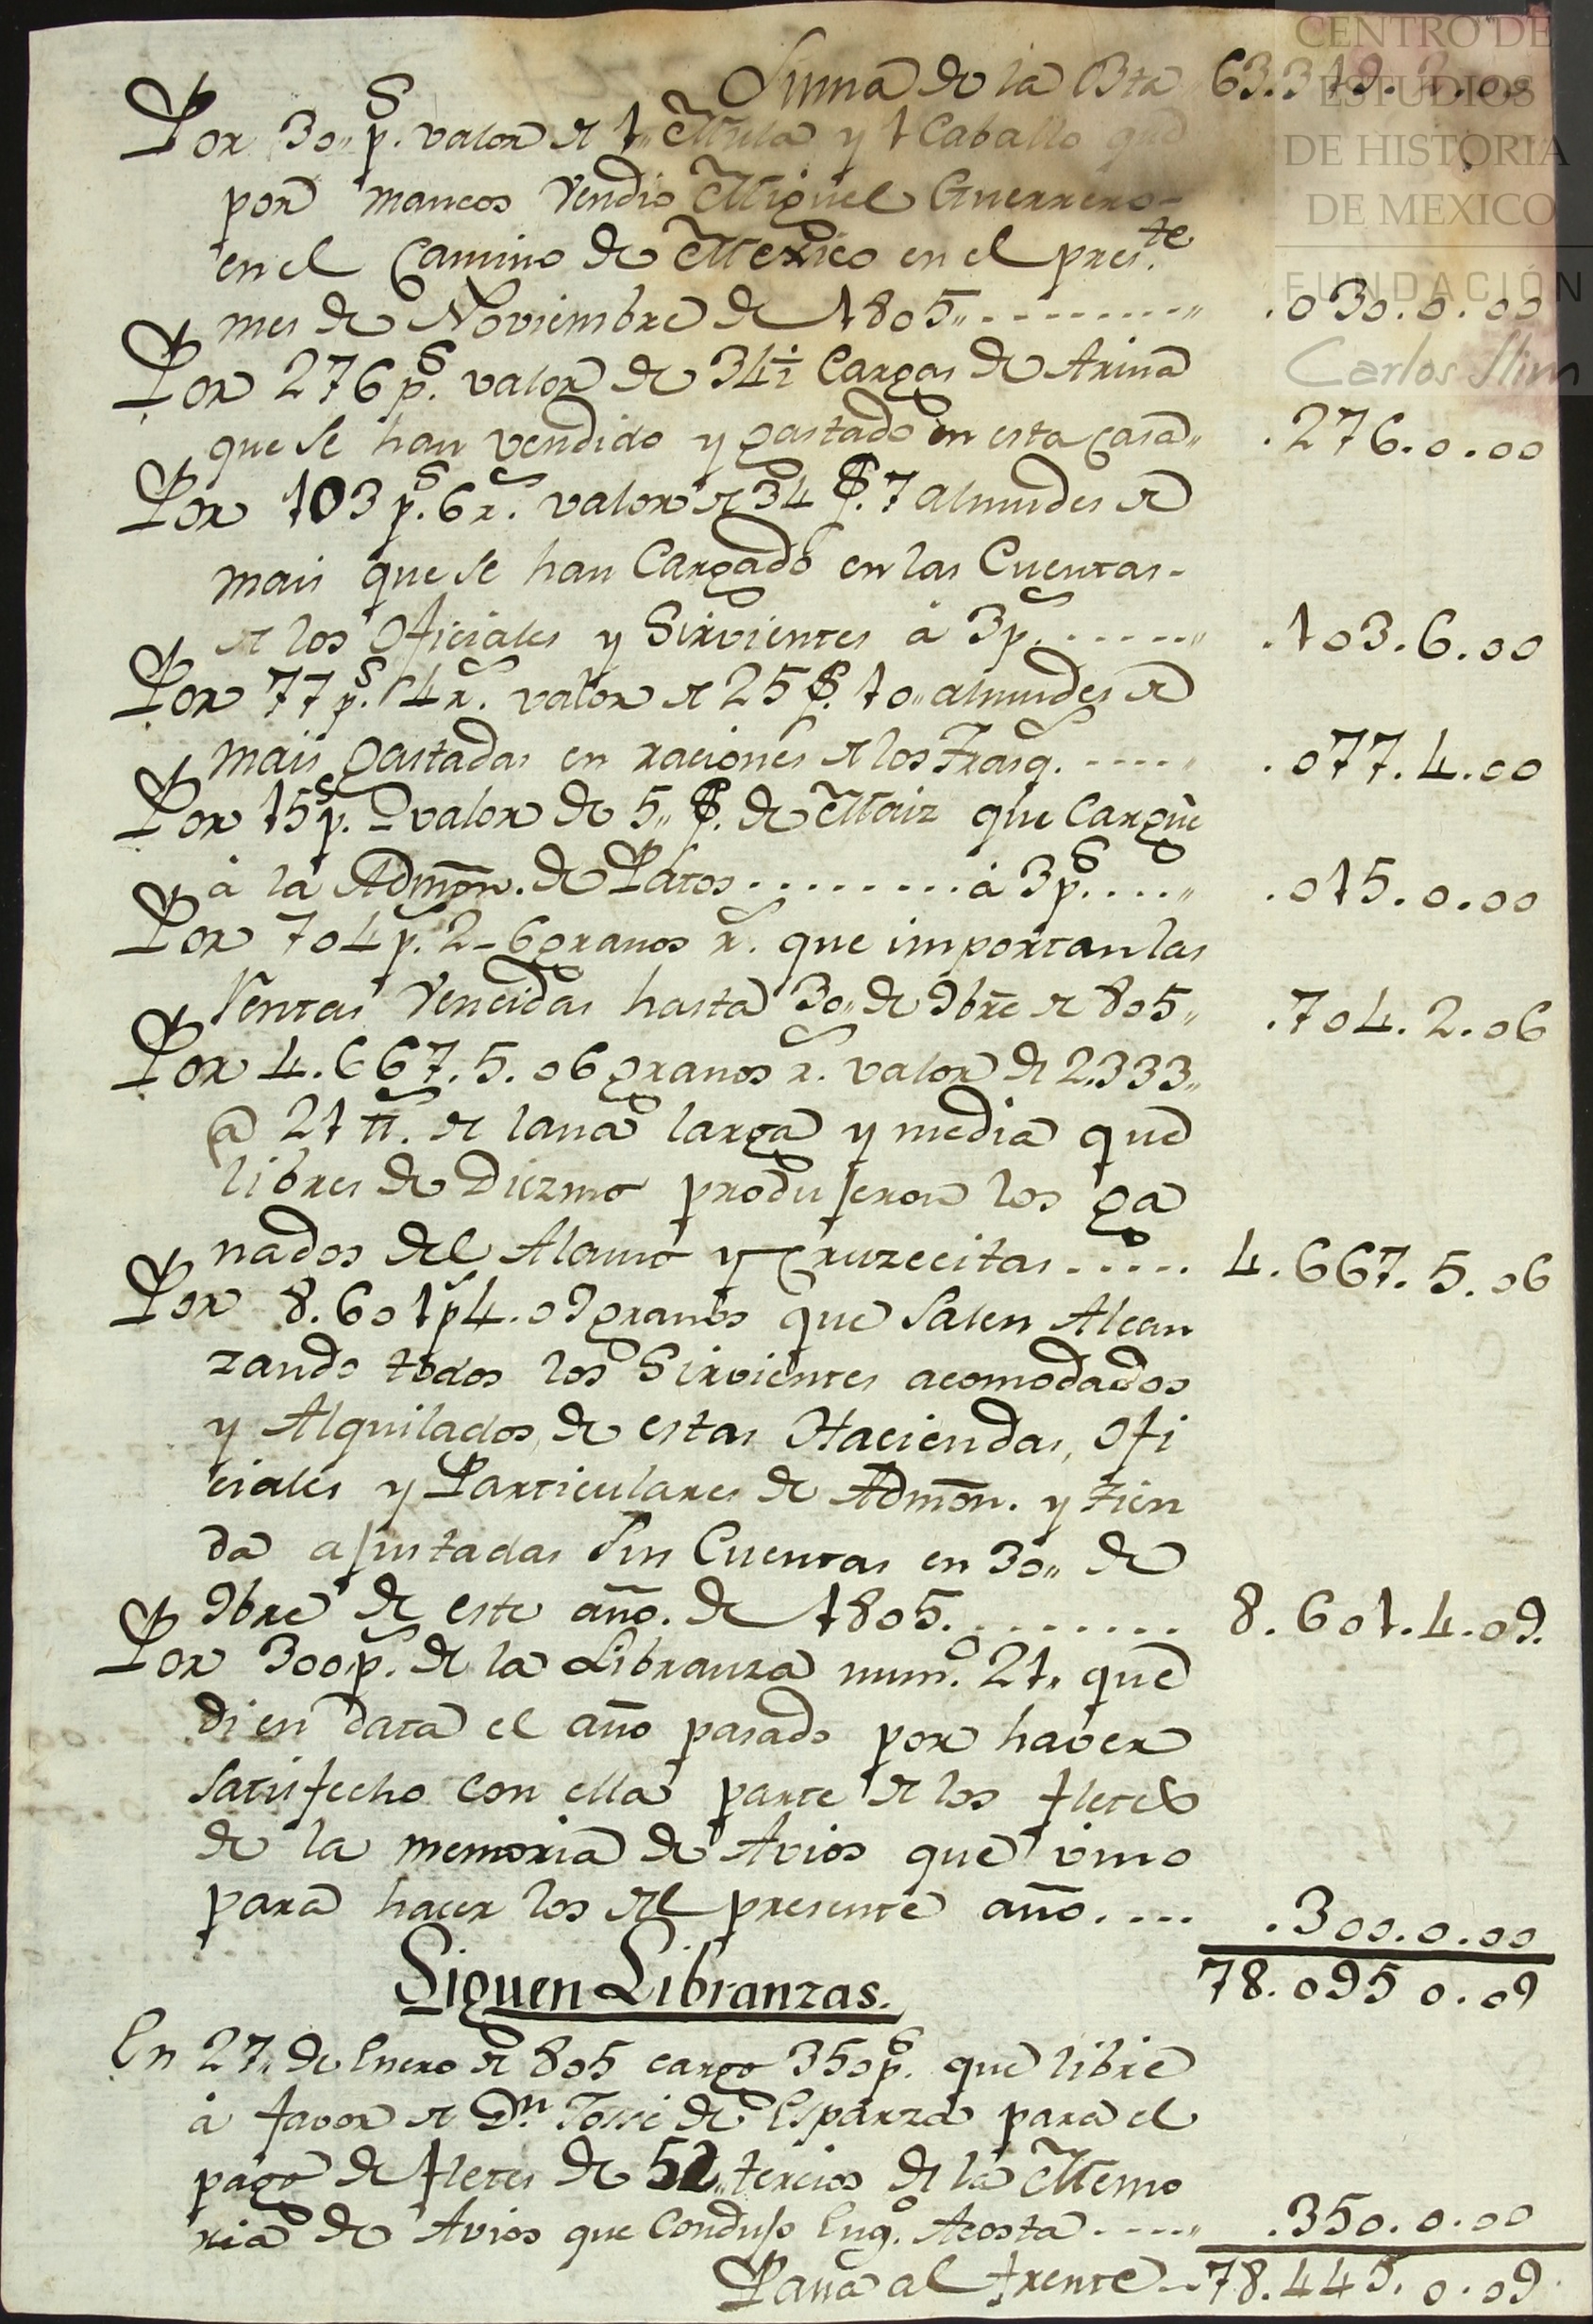 CENTRO DE
ESTUDIOS
DE HISTORIA
DE MEXICO
FUNDACIÓN
Carlos Slim
Suma de la Bta 63.319.2.00
Por 30,, p.s valor de 1,, Mula y 1 Caballo que
por mancos Vendio Miguel Guerrero-
en el Camino de Mexico en el pres.te
mes de Noviembre de 1805,,.........,, .030.0.00
Por 276 p.s valor de 34 1/2 Cargas de Arina
que se han vendido y gastado en esta casa,, .276.0.00
Por 103 p.s 6 r.s valor de 34 f.s 7 almudes de
mais que se han Cargado en las Cuentas-
de los Oficiales y Sirvientes à 3 p.s ......,, .103.6.00
Por 77 p.s 4 r.s valor de 25 f.s 10,, almudes de
mais gastadas en raciones de los Trasq.s ....,, .077.4.00
Por 15 p.s valor de 5,, f.s de Maiz que Cargùe
à la Admon. de Patos.........à 3 p.s ....,, .015.0.00
Por 704 p.s 2-6 granos r.s que importan las
Ventas Vencidas hasta 30,, de 9bre de 805,, .704.2.06
Por 4.667.5.06 granos r.s valor de 2.333,,
@ 21 ℔.s de lana larga y media que
libres de Diezmo produjeron los ga
nados del Alamo y Cruzecitas..... 4.667.5.06
Por 8.601 p.s 4.09 granos que Salen Alcan
zando todos los Sirvientes acomodados
y Alquilados de estas Haciendas, Ofi
ciales y Particulares de Admon. y Tien
da ajustadas Sus Cuentas en 30,, de
9bre de este año. de 1805......... 8.601.4.09.
Por 300 p.s de la Libranza num.o 21,, que
di en data el año pasado por haver
satisfecho con ella parte de los fletes
de la memoria de Avios que vino
para hacer los del presente año.... .300.0.00
78.095 0.09
Siguen Libranzas.
En 27,, de Enero de 805 cargo 350 p.s que libre
à favor de Dn. Josse de Esparza para el
pago de fletes de 52,, tercios de la Memo
ria de Avios que Condujo Eug.o Acosta.....,, .350.0.00
Pasa al frente...78.445.0.09